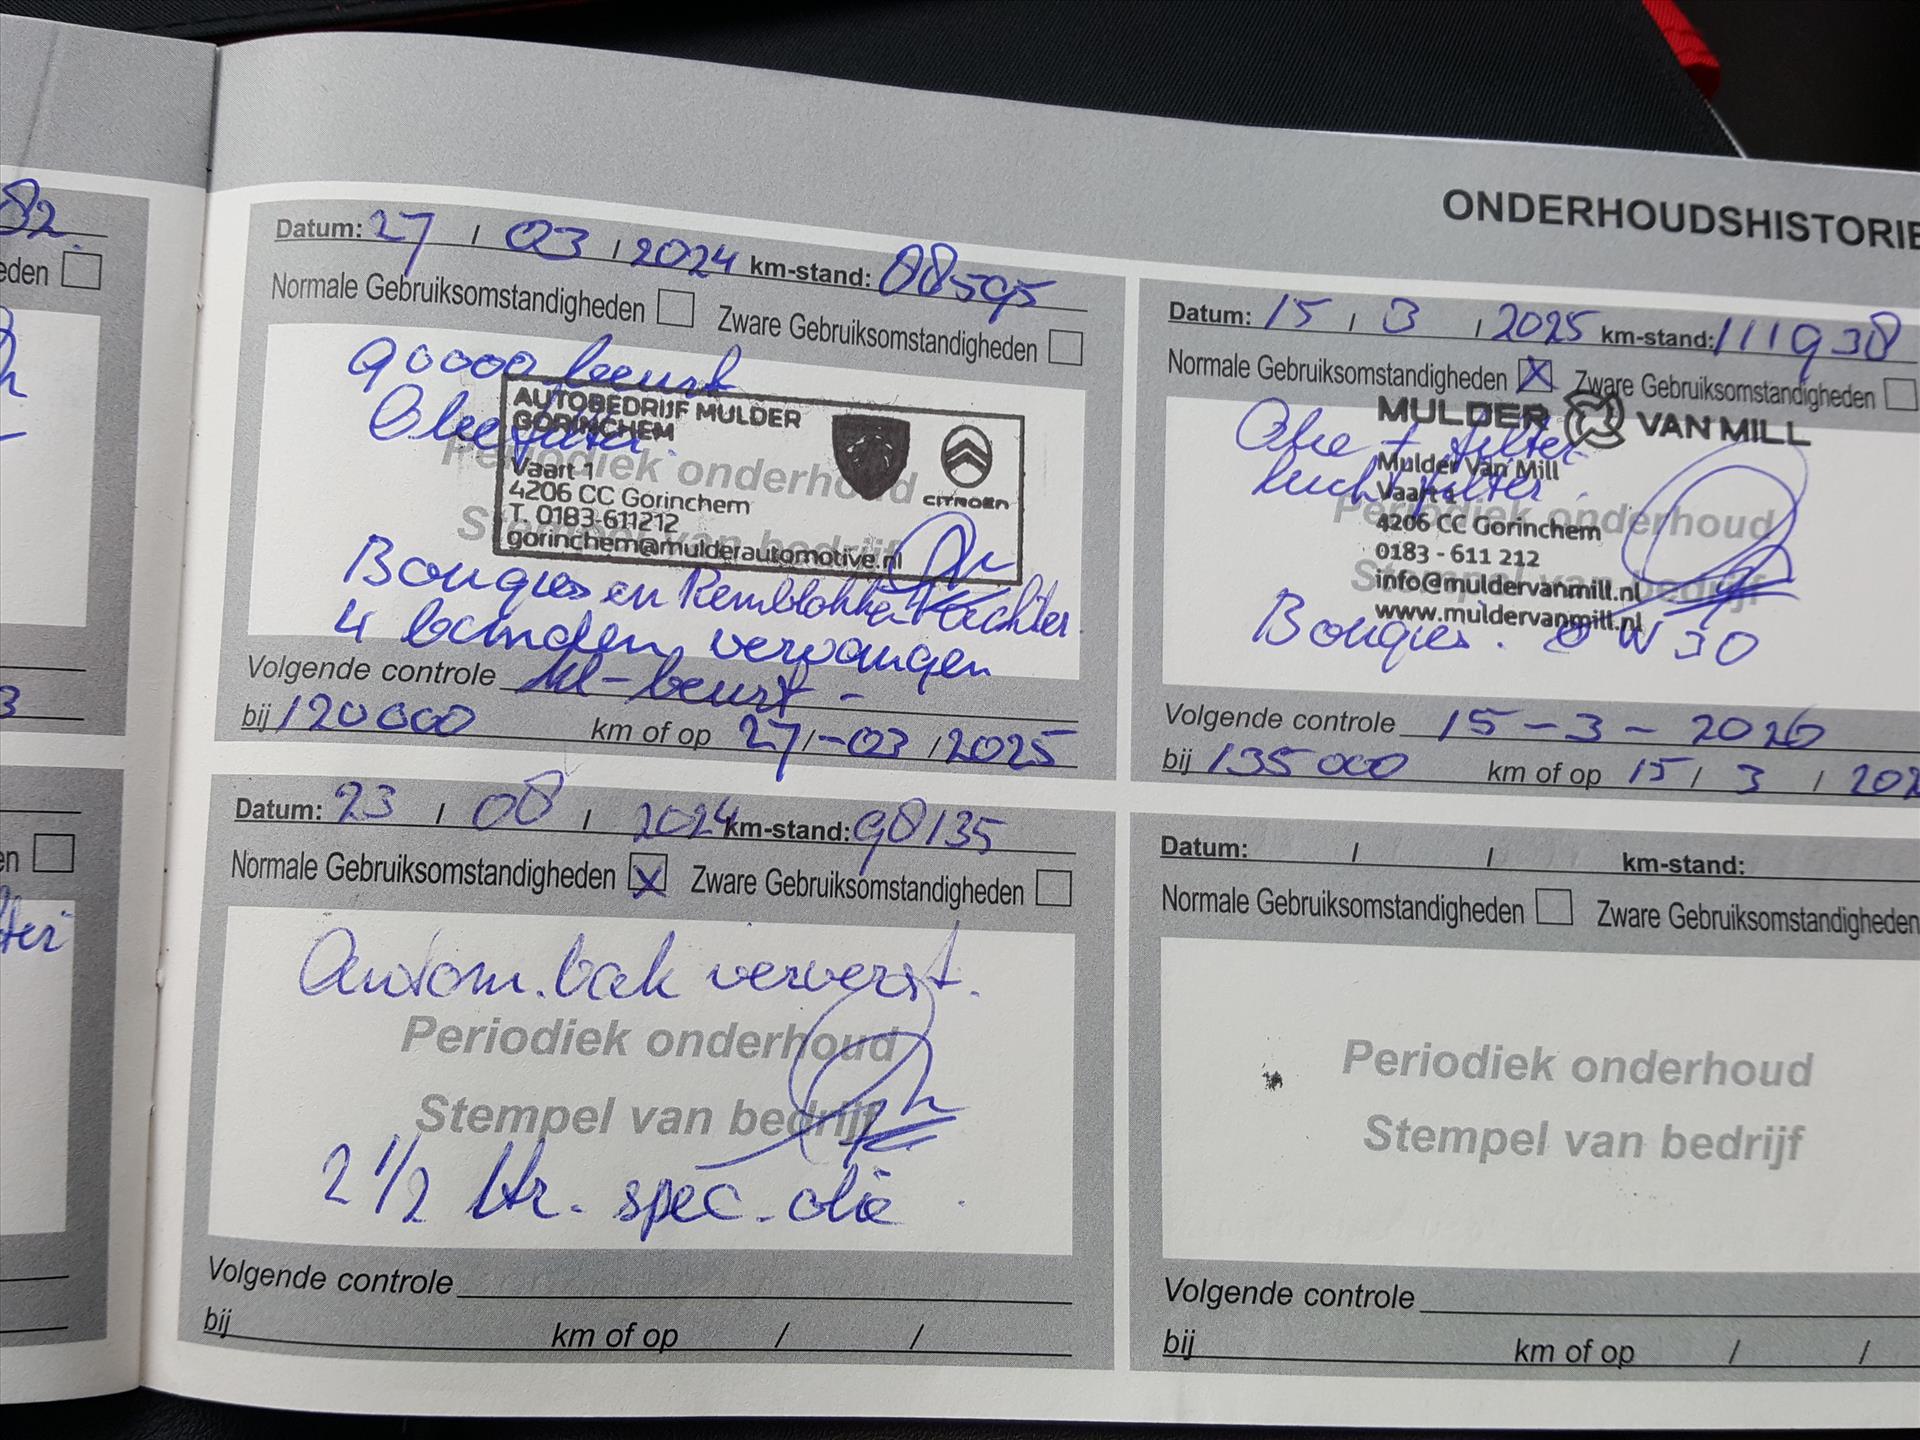 ONDERHOUDSHISTORIE
82.
eden
3
en
Datum: 27 / 03 / 2024 km-stand: 88595
Normale Gebruiksomstandigheden Zware Gebruiksomstandigheden
90000 beurt
Olie filter.
AUTOBEDRIJF MULDER
GORINCHEM
Vaart 1
4206 CC Gorinchem
T. 0183-611212
gorinchem@mulderautomotive.nl
CITROËN
Periodiek onderhoud
Stempel van bedrijf
Bougies en Remblokken achter.
4 banden vervangen
Volgende controle kl-beurt -
bij 120000 km of op 27/-03 /2025
Datum: 23 / 08 / 2024 km-stand: 98135
Normale Gebruiksomstandigheden X Zware Gebruiksomstandigheden
Autom. bak ververst.
Periodiek onderhoud
Stempel van bedrijf
2 1/2 ltr. spec. olie
Volgende controle
bij km of op / /
Datum: 15 / 3 / 2025 km-stand: 111938
Normale Gebruiksomstandigheden X Zware Gebruiksomstandigheden
MULDER VAN MILL
Olie + filter
luchtfilter.
Mulder Van Mill
Vaart 1
4206 CC Gorinchem
0183 - 611 212
info@muldervanmill.nl
www.muldervanmill.nl
Periodiek onderhoud
Stempel van bedrijf
Bougies. 0W30
Volgende controle 15-3-2026
bij 135000 km of op 15/ 3 / 202
Datum: / / km-stand:
Normale Gebruiksomstandigheden Zware Gebruiksomstandigheden
Periodiek onderhoud
Stempel van bedrijf
Volgende controle
bij km of op / /